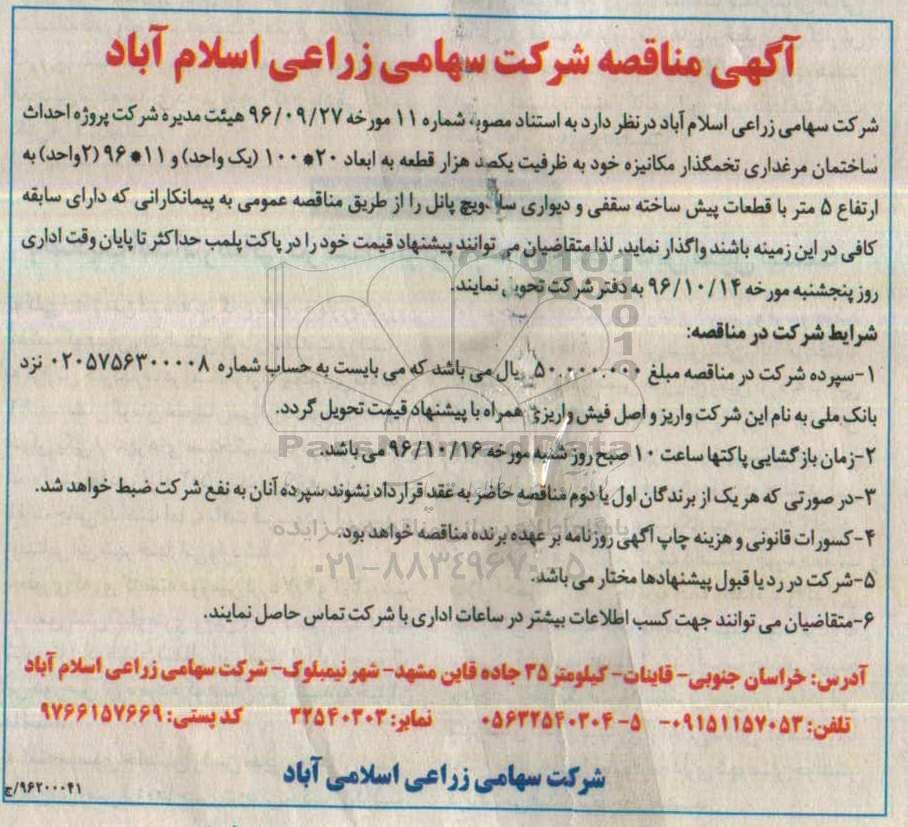 آگهی مناقصه شرکت سهامی زراعی اسلام آباد
شرکت سهامی زراعی اسلام آباد درنظر دارد به استناد مصوبه شماره ۱۱ مورخه ۹۶/۰۹/۲۷ هیئت مدیره شرکت پروژه احداث
ساختمان مرغداری تخمگذار مکانیزه خود به ظرفیت یکصد هزار قطعه به ابعاد ۲۰*۱۰۰ (یک واحد) و ۱۱*۹۶ (۲واحد) به
ارتفاع ۵ متر با قطعات پیش ساخته سقفی و دیواری ساندویچ پانل را از طریق مناقصه عمومی به پیمانکارانی که دارای سابقه
کافی در این زمینه باشند واگذار نماید. لذا متقاضیان می توانند پیشنهاد قیمت خود را در پاکت پلمب حداکثر تا پایان وقت اداری
روز پنجشنبه مورخه ۹۶/۱۰/۱۴ به دفتر شرکت تحویل نمایند.
شرایط شرکت در مناقصه:
۱-سپرده شرکت در مناقصه مبلغ ۵۰.۰۰۰.۰۰۰ ریال می باشد که می بایست به حساب شماره ۰۲۰۵۷۵۶۳۰۰۰۰۸ نزد
بانک ملی به نام این شرکت واریز و اصل فیش واریزی همراه با پیشنهاد قیمت تحویل گردد.
۲-زمان بازگشایی پاکتها ساعت ۱۰ صبح روز شنبه مورخه ۹۶/۱۰/۱۶ می باشد.
۳-در صورتی که هر یک از برندگان اول یا دوم مناقصه حاضر به عقد قرارداد نشوند سپرده آنان به نفع شرکت ضبط خواهد شد.
۴-کسورات قانونی و هزینه چاپ آگهی روزنامه بر عهده برنده مناقصه خواهد بود.
۵-شرکت در رد یا قبول پیشنهادها مختار می باشد.
۶-متقاضیان می توانند جهت کسب اطلاعات بیشتر در ساعات اداری با شرکت تماس حاصل نمایند.
آدرس: خراسان جنوبی- قاینات- کیلومتر ۳۵ جاده قاین مشهد- شهر نیمبلوک- شرکت سهامی زراعی اسلام آباد
تلفن: ۰۹۱۵۱۱۵۷۰۵۳- ۵-۰۵۶۳۲۵۴۰۳۰۴ نمابر: ۳۲۵۴۰۳۰۳ کدپستی: ۹۷۶۶۱۵۷۶۶۹
شرکت سهامی زراعی اسلامی آباد
۹۶۲۰۰۰۴۱/ج
ParsNamadData
۰۲۱-۸۸۳۴۹۶۷۰-۵